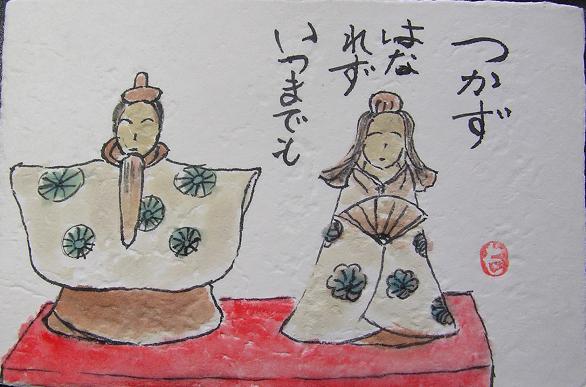 つかず
はな
れず
いつまでも